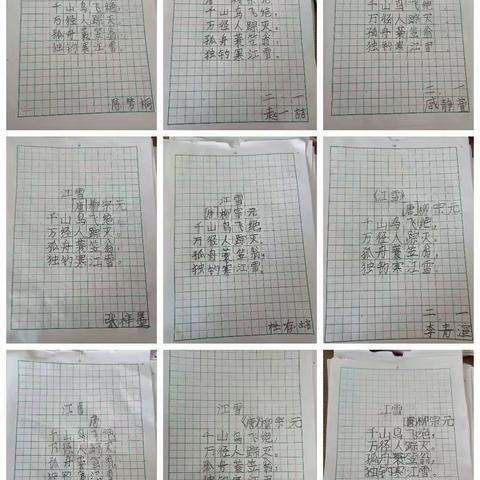 千山鸟飞绝,
万径人踪灭。
孤舟蓑笠翁,
独钓寒江雪。
陈梦桐
千山鸟飞绝,
万径人踪灭。
孤舟蓑笠翁,
独钓寒江雪。
二.一
赵一喆
千山鸟飞绝,
万径人踪灭。
孤舟蓑笠翁,
独钓寒江雪。
二.一
静萱
江雪
[唐]柳宗元
千山鸟飞绝,
万径人踪灭。
孤舟蓑笠翁,
独钓寒江雪。
张梓墨
江雪
[唐]柳宗元
千山鸟飞绝,
万径人踪灭。
孤舟蓑笠翁,
独钓寒江雪。
《江雪》
[唐]柳宗元
千山鸟飞绝,
万径人踪灭。
孤舟蓑笠翁,
独钓寒江雪。
二.一
李青
江雪
唐
千山鸟飞绝,
万径人踪灭。
孤舟蓑笠翁
江雪
(唐)柳宗元
千山鸟飞绝,
万径人踪灭。
孤舟蓑笠翁,
独钓寒江雪
江雪
[唐]柳宗元
千山鸟飞绝,
万径人踪灭。
孤舟蓑笠翁,
独钓寒江雪。